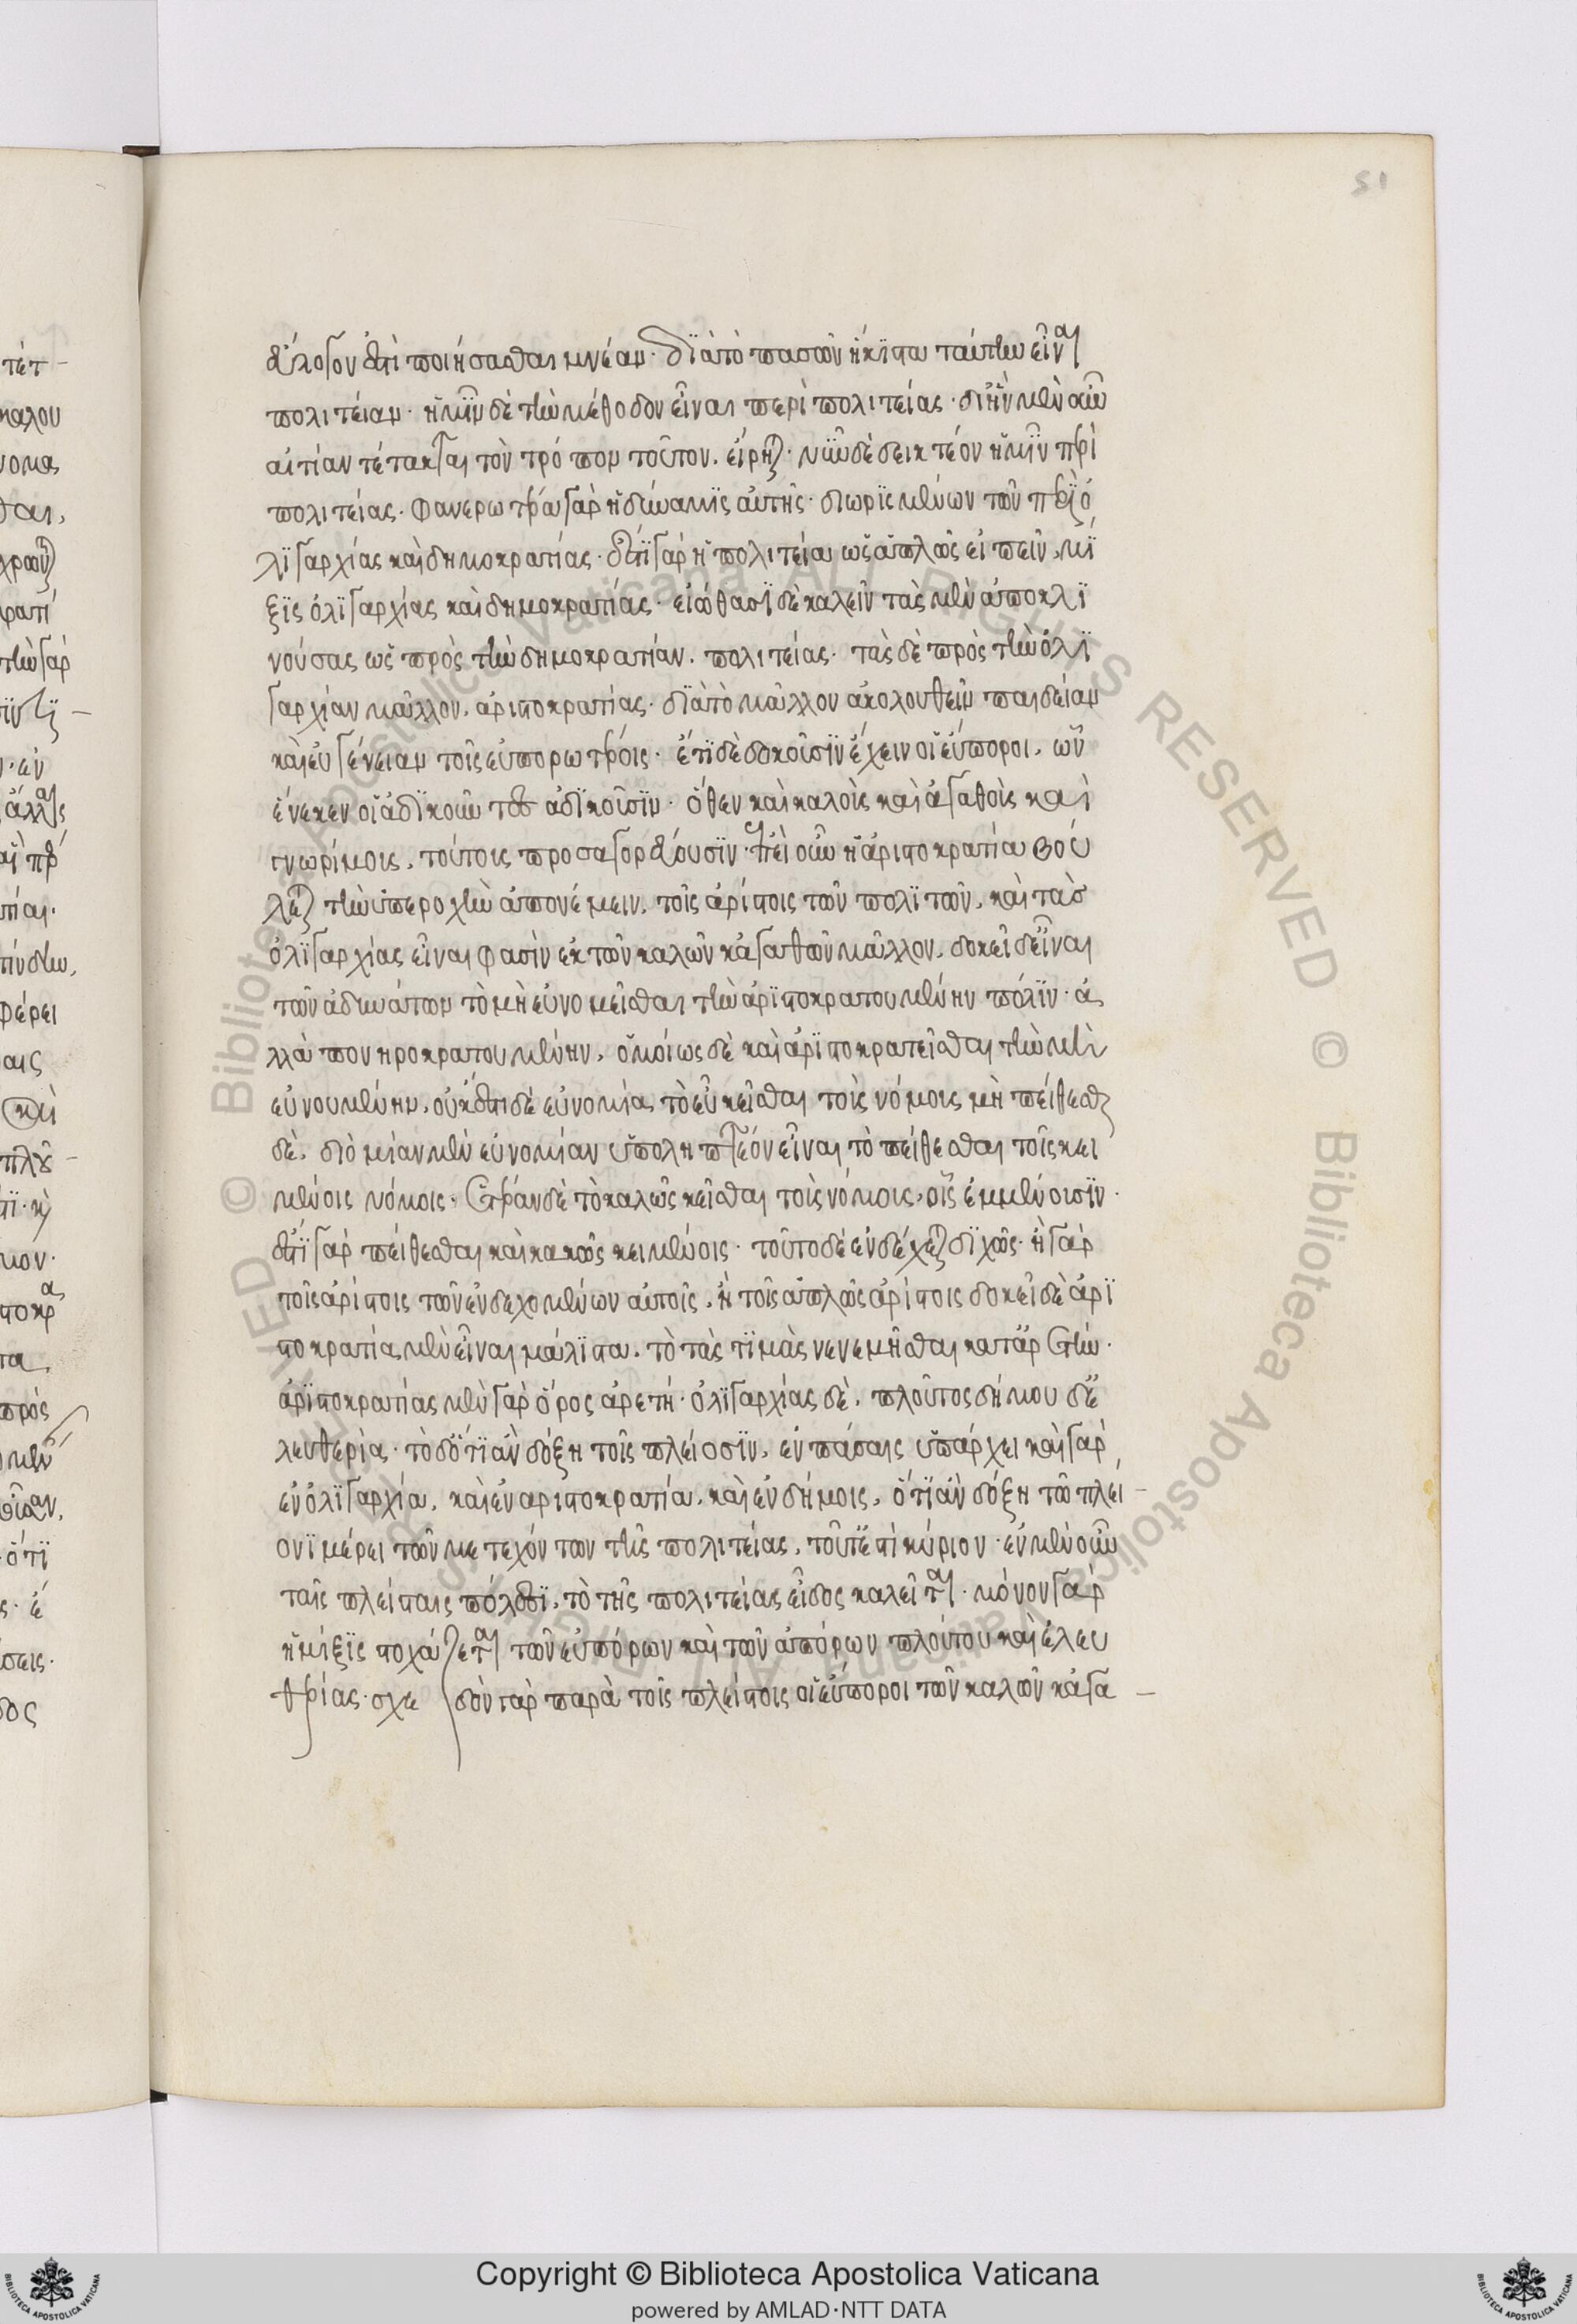 51
εὔλογον ἐστὶ ποιήσασθαι μνείαν· διὰ τὸ πασῶν ἥκιστα ταύτην εἶναι
πολιτείαν· ἡμῖν δὲ τὴν μέθοδον εἶναι περὶ πολιτείας· δι' ἣν μὲν οὖν
αἰτίαν τέτακται τὸν τρόπον τοῦτον, εἴρηται· νῦν δὲ δεικτέον ἡμῖν περὶ
πολιτείας· φανερωτέρα γὰρ ἡ δύναμις αὐτῆς· διωρισμένων τῶν περὶ ὀ
λιγαρχίας καὶ δημοκρατίας· ἔστι γὰρ ἡ πολιτεία ὡς ἁπλῶς εἰπεῖν, μί
ξις ὀλιγαρχίας καὶ δημοκρατίας· εἰώθασι δὲ καλεῖν τὰς μὲν ἀποκλι
νούσας ὡς πρὸς τὴν δημοκρατίαν, πολιτείας· τὰς δὲ πρὸς τὴν ὀλι
γαρχίαν μᾶλλον, ἀριστοκρατίας· διὰ τὸ μᾶλλον ἀκολουθεῖν παιδείαν
καὶ εὐγένειαν τοῖς εὐπορωτέροις· ἔτι δὲ δοκοῦσιν ἔχειν οἱ εὔποροι, ὧν
ἕνεκεν οἱ ἀδικοῦντες ἀδικοῦσιν· ὅθεν καὶ καλοὺς καὶ ἀγαθοὺς καὶ
γνωρίμους, τούτους προσαγορεύουσιν· ἐπεὶ οὖν ἡ ἀριστοκρατία βού
λεται τὴν ὑπεροχὴν ἀπονέμειν, τοῖς ἀρίστοις τῶν πολιτῶν, καὶ τὰς
ὀλιγαρχίας εἶναι φασὶν ἐκ τῶν καλῶν κἀγαθῶν μᾶλλον, δοκεῖ δ' εἶναι
τῶν ἀδυνάτων τὸ μὴ εὐνομεῖσθαι τὴν ἀριστοκρατουμένην πόλιν· ἀ
λλὰ πονηροκρατουμένην, ὁμοίως δὲ καὶ ἀριστοκρατεῖσθαι τὴν μὴ
εὐνουμένην, οὐκ ἔστι δὲ εὐνομία, τὸ εὖ κεῖσθαι τοὺς νόμους μὴ πείθεσθαι
δὲ, διὸ μίαν μὲν εὐνομίαν ὑποληπτέον εἶναι τὸ πείθεσθαι τοῖς κει
μένοις νόμοις· ἑτέραν δὲ τὸ καλῶς κεῖσθαι τοὺς νόμους, οἷς ἐμμένουσιν·
ἔστι γὰρ πείθεσθαι καὶ κακῶς κειμένοις· τοῦτο δὲ ἐνδέχεται διχῶς· ἢ γὰρ
τοῖς ἀρίστοις τῶν ἐνδεχομένων αὐτοῖς, ἢ τοῖς ἁπλῶς ἀρίστοις δοκεῖ δὲ ἀρι
στοκρατία μὲν εἶναι μάλιστα, τὸ τὰς τιμὰς νενεμῆσθαι κατ' ἀρετήν·
ἀριστοκρατίας μὲν γὰρ ὅρος ἀρετή· ὀλιγαρχίας δὲ, πλοῦτος δήμου δ' ἐ
λευθερία· τὸ δ' ὅτι ἂν δόξῃ τοῖς πλείοσιν, ἐν πάσαις ὑπάρχει καὶ γὰρ
ἐν ὀλιγαρχία, καὶ ἐν ἀριστοκρατία, καὶ ἐν δήμοις, ὅτι ἂν δόξῃ τῶ πλεί
ονι μέρει τῶν μετεχόντων τῆς πολιτείας, τοῦτ' ἔστι κύριον· ἐν μὲν οὖν
ταῖς πλείσταις πόλεσι, τὸ τῆς πολιτείας εἶδος καλεῖται· μόνον γὰρ
ἡ μίξις στοχάζεται τῶν εὐπόρων καὶ τῶν ἀπόρων πλούτου καὶ ἐλευ
θερίας· σχεδὸν γὰρ παρὰ τοῖς πλείστοις οἱ εὔποροι τῶν καλῶν κἀγα
Copyright © Biblioteca Apostolica Vaticana
powered by AMLAD·NTT DATA